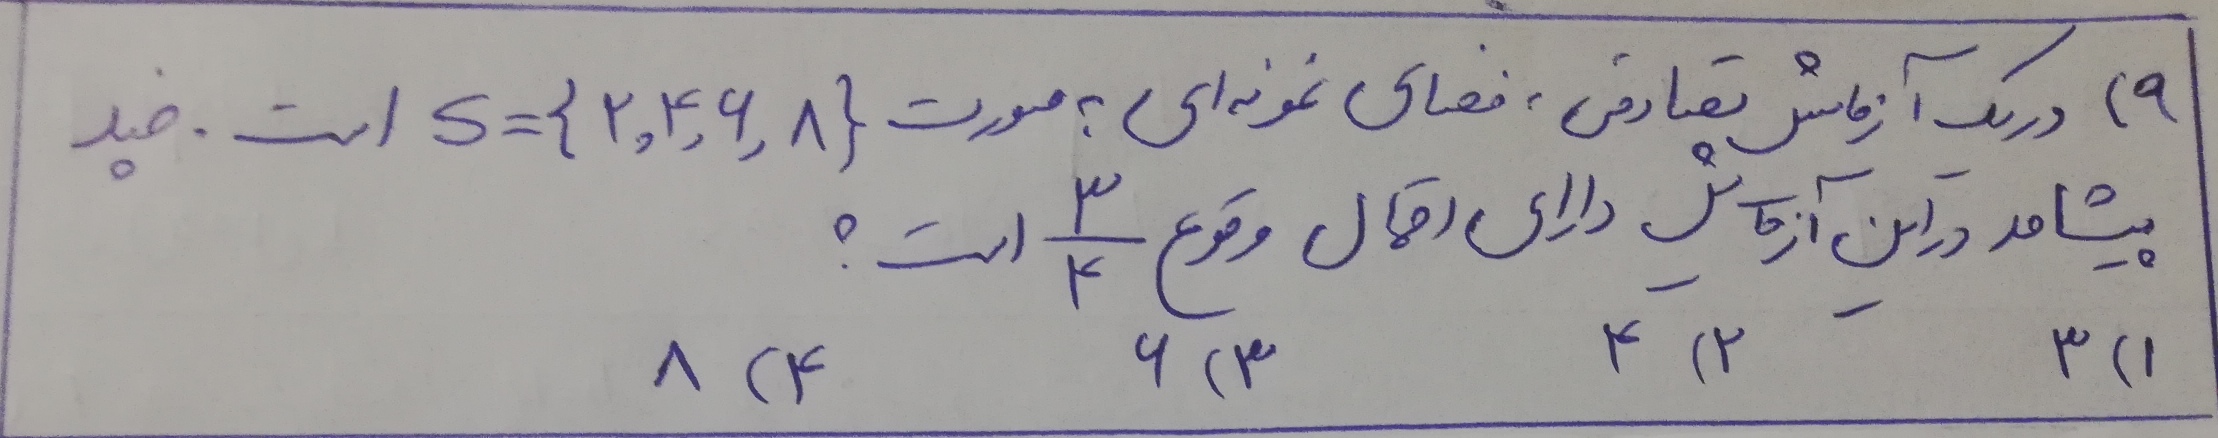 ۹) در یک آزمایش تصادفی، فضای نمونه‌ای به صورت S={۲,۴,۶,۸} است. چند
پیشامد در این آزمایش دارای احتمال وقوع ۳/۴ است؟
۱) ۳ ۲) ۴ ۳) ۶ ۴) ۸